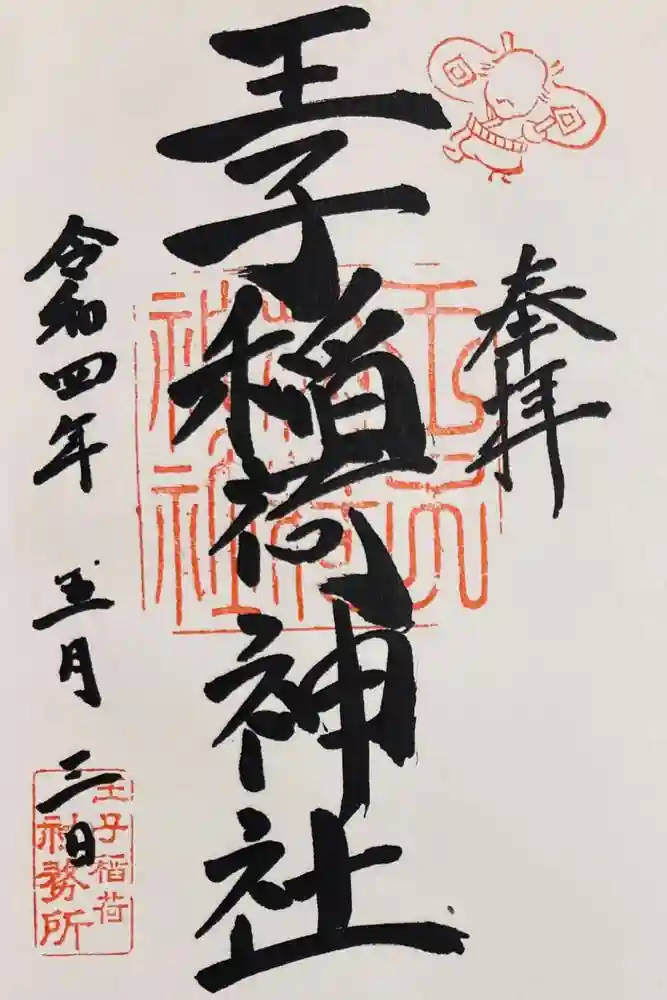 奉拝
王子稲荷神社
令和四年 五月 三日
王子稲荷
神社
王子稲荷
社務所